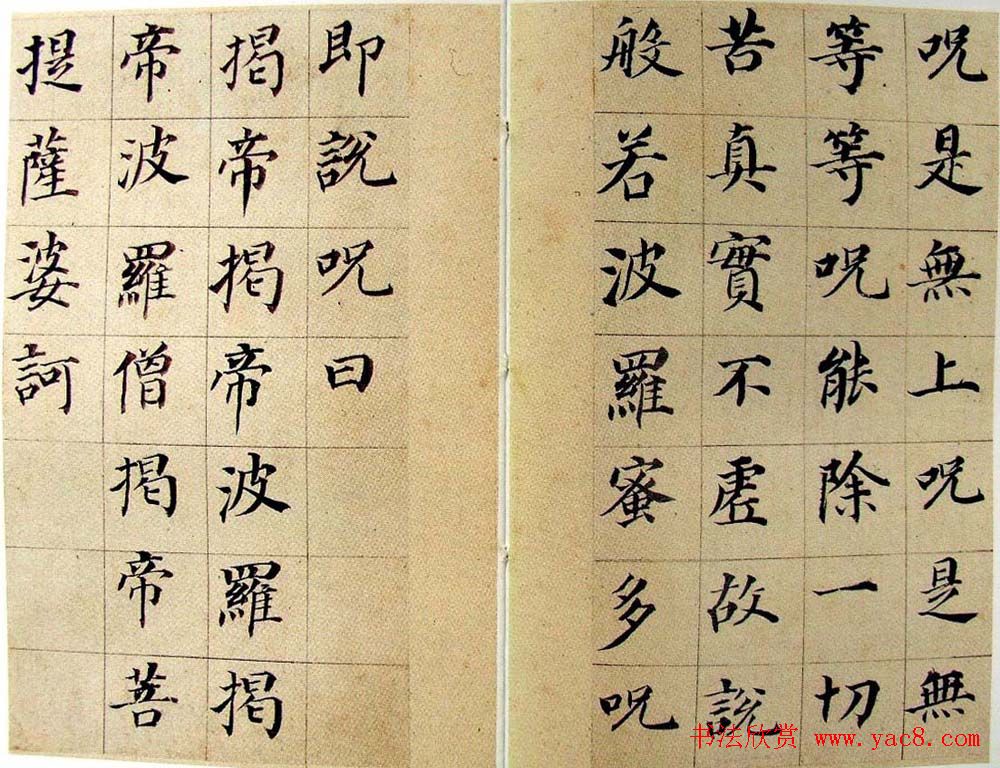 呪是無上呪是無
等等呪能除一切
苦真實不虛故說
般若波羅蜜多呪
即說呪曰
揭帝揭帝波羅揭
帝波羅僧揭帝菩
提薩婆訶
书法欣赏 www.yac8.com